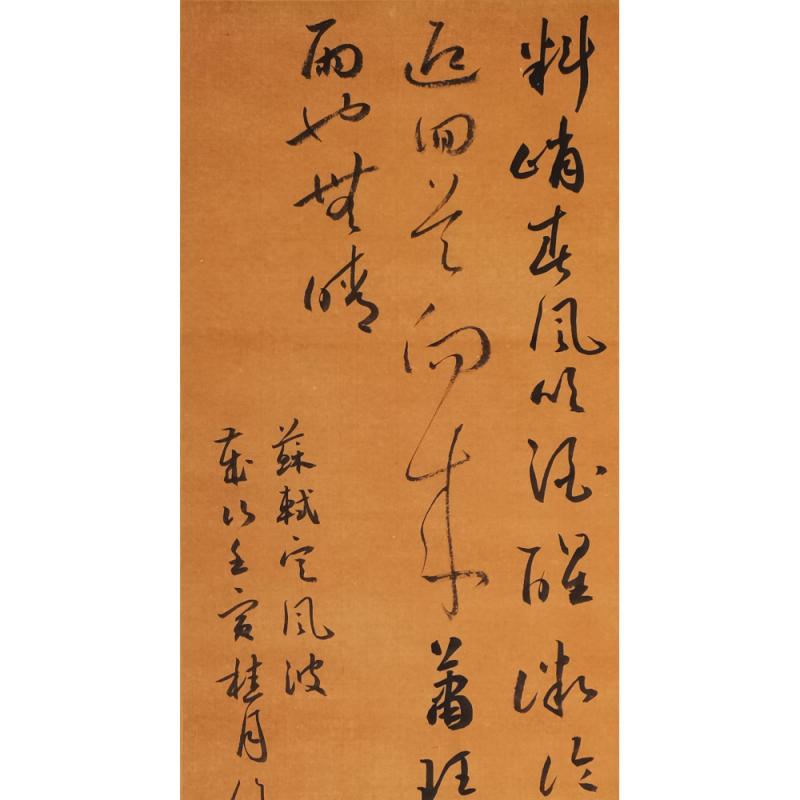 料峭春風吹酒醒微冷
迎回首向來蕭
雨也無晴
蘇軾定風波
歲次壬寅桂月